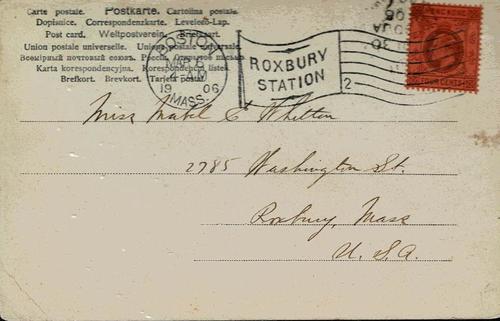 Carte postale. Postkarte. Cartolina postale.
Dopisnice. Correspondenzkarte. Levelező-Lap.
Post card. Weltpostverein. Briefkart.
Union postale universelle. Unione postale universale.
Всемірный почтовый союзъ. Россія. Открытое письмо.
Karta korespondencyjna. Korespondencni listek.
Brefkort. Brevkort. Tarjeta postal.
19 06
MASS.
ROXBURY
STATION
2
FOUR CENTS
Miss Mabel E Whitton
2785 Washington St.
Roxbury, Mass
U.S.A.